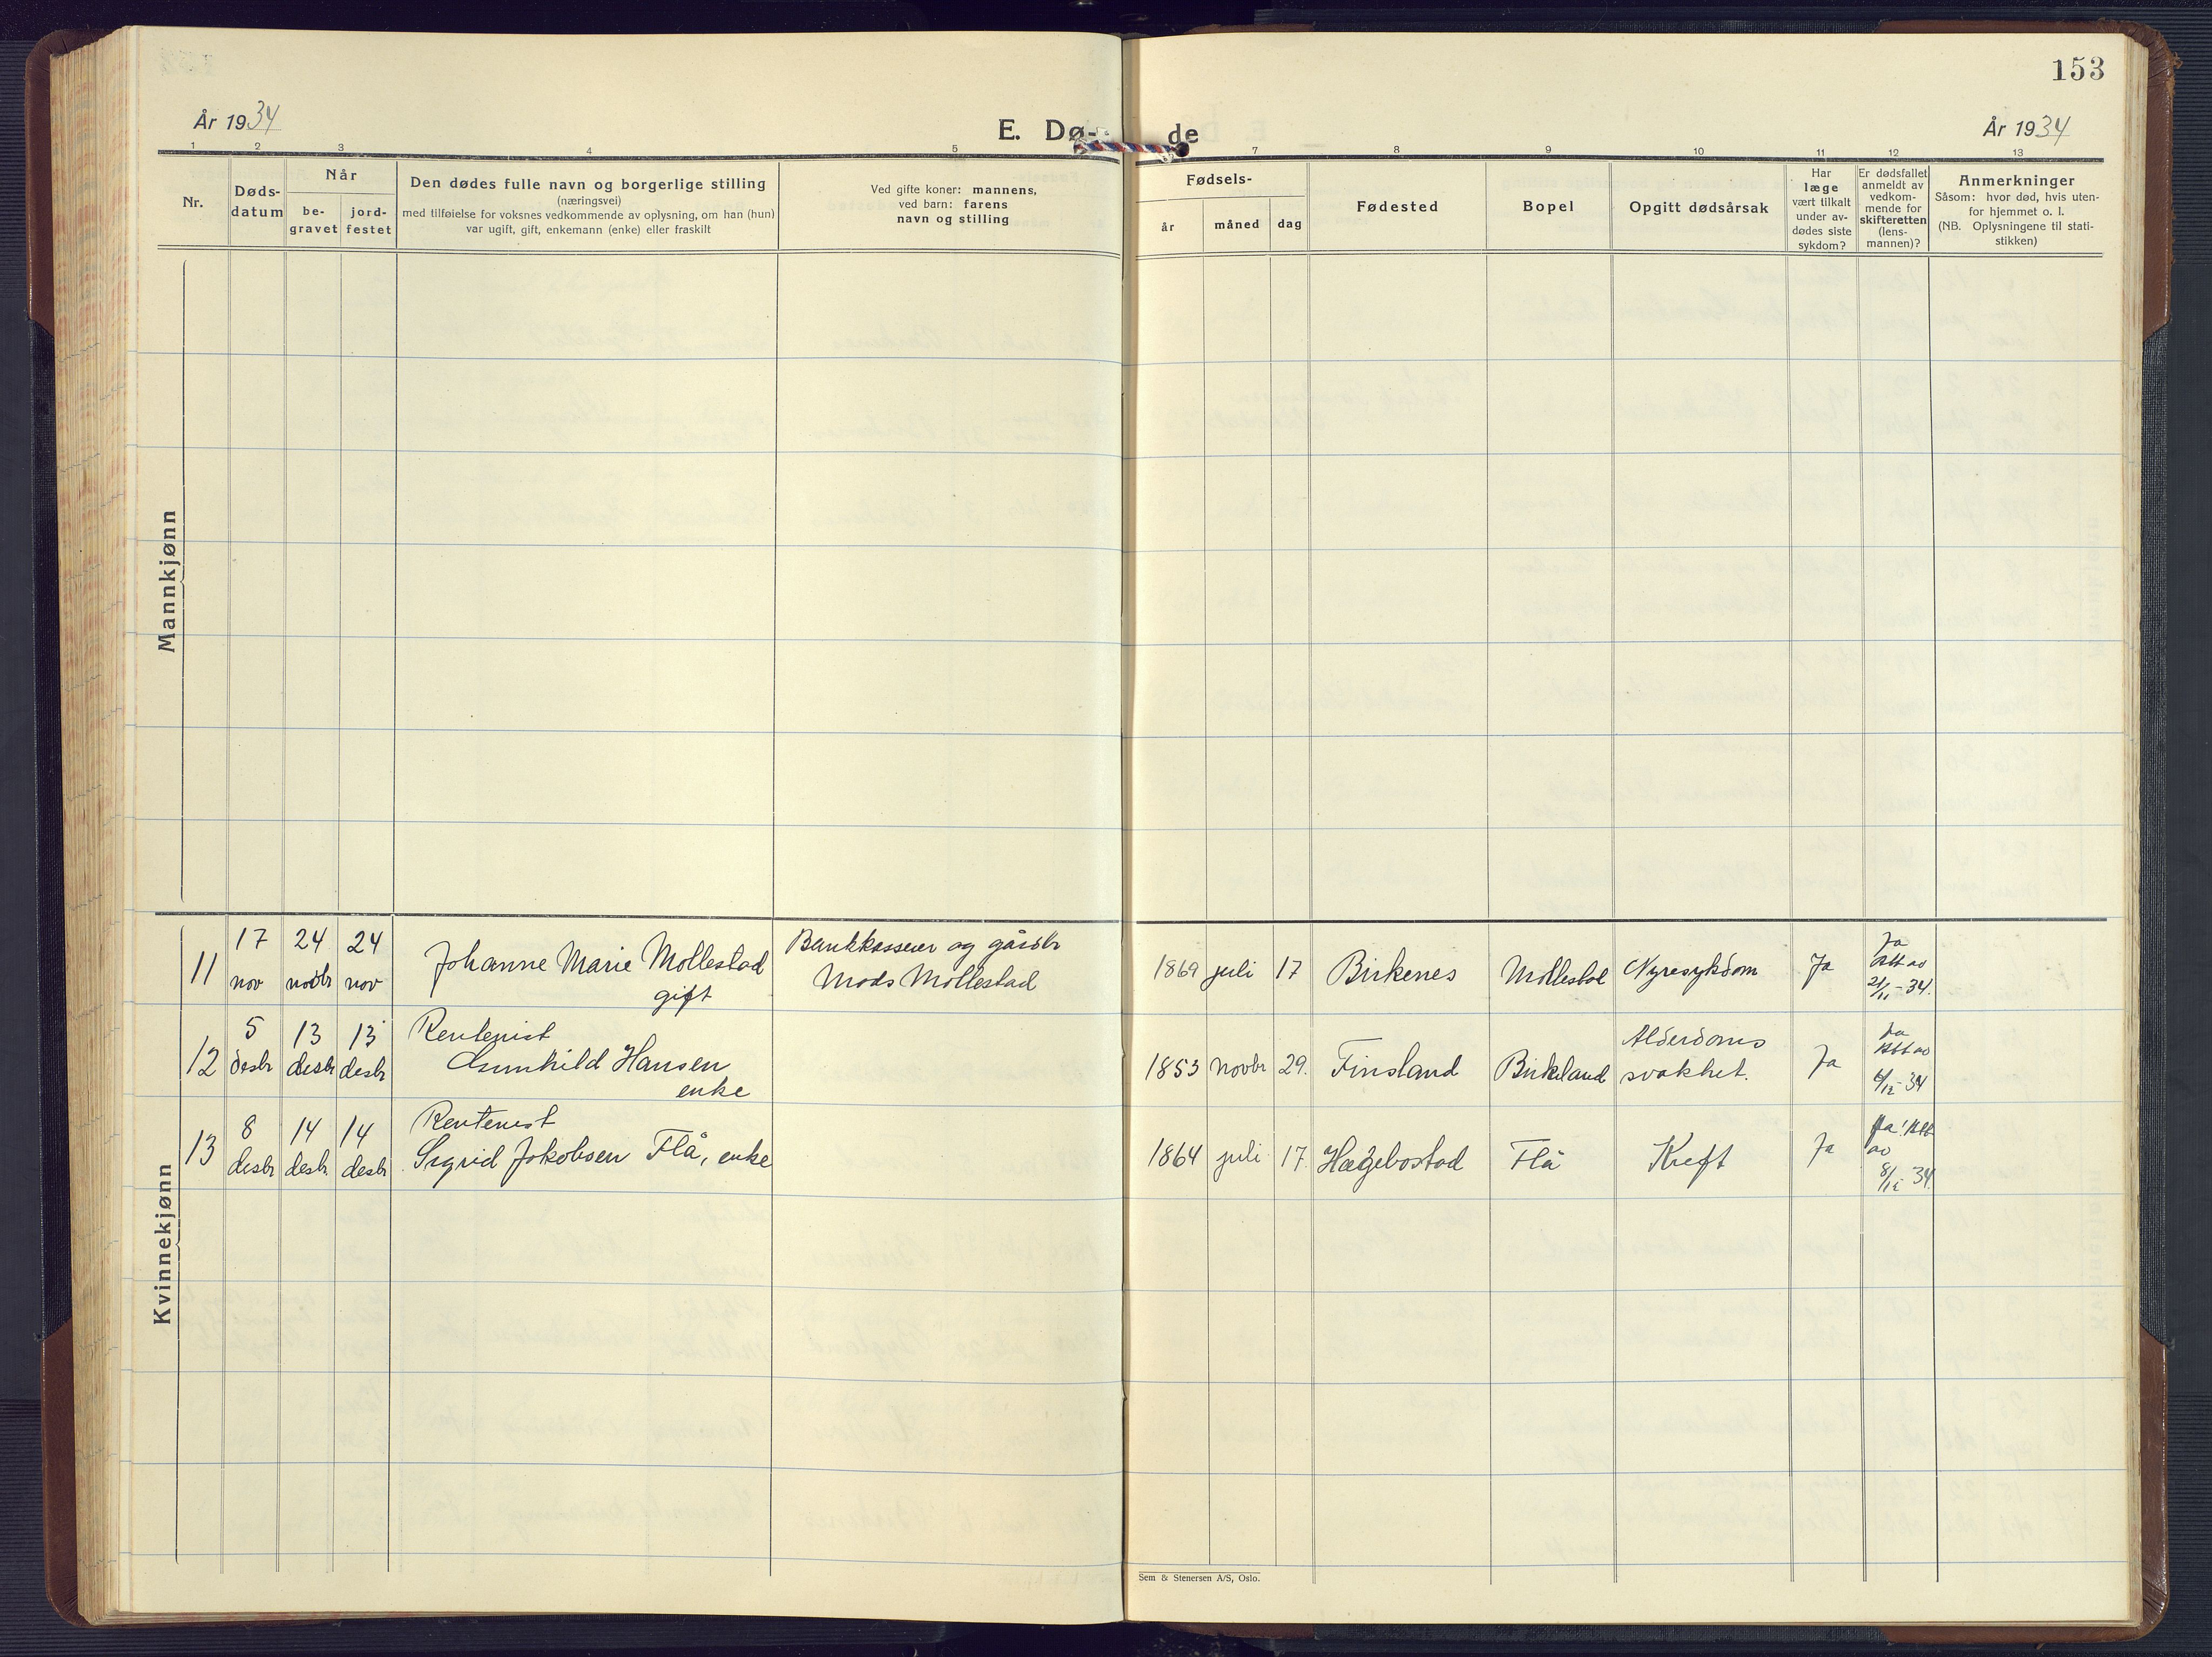 153
År 1934
E. Dø-
de
År 1934
1 2 3 4 5 7 8 9 10 11 12 13
Nr.
Døds-
datum
Når
be-
gravet
jord-
festet
Den dødes fulle navn og borgerlige stilling
(næringsvei)
med tilføielse for voksnes vedkommende av oplysning, om han (hun)
var ugift, gift, enkemann (enke) eller fraskilt
Ved gifte koner: mannens,
ved barn: farens
navn og stilling
Fødsels-
år
måned
dag
Fødested
Bopel
Opgitt dødsårsak
Har
læge
vært tilkalt
under av-
dødes siste
sykdom?
Er dødsfallet
anmeldt av
vedkom-
mende for
skifteretten
(lens-
mannen)?
Anmerkninger
Såsom: hvor død, hvis uten-
for hjemmet o. l.
(NB. Oplysningene til stati-
stikken)
Mannkjønn
Kvinnekjønn
11
17
nov
24
novbr
24
nov
Johanne Marie Mollestad
gift
Bankkasserer og gårdbr
Mads Mollestad
1869 juli 17
Birkenes
Mollestad
Nyresykdom
Ja
Ja
Att av
21/11 - 34.
12
5
desbr
13
desbr
13
desbr
Rentenist
Gunhild Hansen
enke
1853 novbr 29.
Finsland
Birkeland
Alderdoms
svakhet.
Ja
Ja
Att av
6/12 - 34
13
8
desbr
14
desbr
14
desbr
Rentenist
Sigrid Jakobsen Flå, enke
1864 juli 17.
Hægebostad
Flå
Kreft
Ja
Ja! Att
av
8/12 34.
Sem & Stenersen A/S, Oslo.